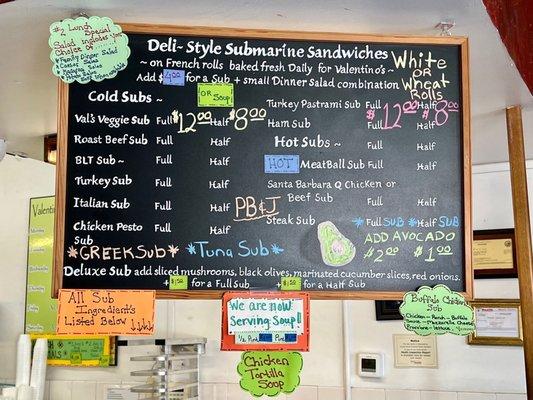 #2 Lunch
Special
Salad includes your
Choice of
Family Dinner Salad
Caesar Salad
Deli-Style Submarine Sandwiches
~ on French rolls baked fresh Daily for Valentino's ~
Add $4.00 for a Sub + small Dinner Salad combination
OR Soup
White
OR
Wheat
Rolls
Cold Subs ~
Val's Veggie Sub Full $12.00 Half $8.00
Roast Beef Sub Full Half
BLT Sub ~ Full Half
Turkey Sub Full Half
Italian Sub Full Half
Chicken Pesto Full Half
Sub
PB&J
GREEK Sub
Tuna Sub
Turkey Pastrami Sub Full $12.00 Half $8.00
Ham Sub Full Half
Hot Subs ~ Full Half
HOT MeatBall Sub Full Half
Santa Barbara Q Chicken or
Beef Sub Full Half
Steak Sub Full SUB Half SUB
ADD AVOCADO
$2.00 $1.00
Deluxe Sub add sliced mushrooms, black olives, marinated cucumber slices, red onions.
+ $1.50 for a Full Sub + for a Half Sub
All Sub
Ingredient's
Listed Below
We are now
Serving Soup!
Chicken Tortilla
Soup
Buffalo Chicken
Sub
Valentino